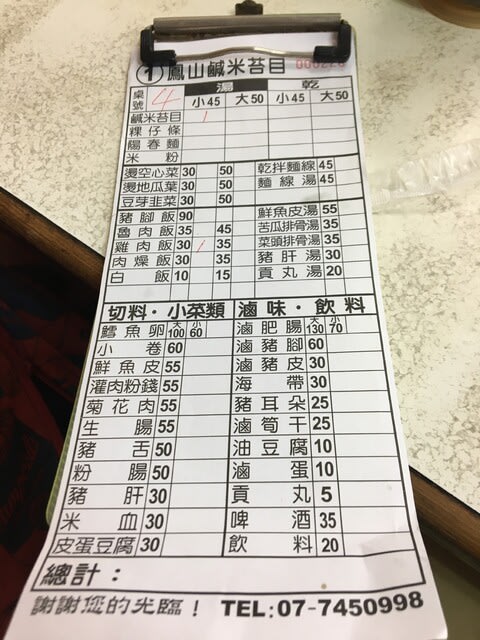 ① 鳳山鹹米苔目
桌號 4 湯 乾
小45 大50 小45 大50
鹹米苔目 1
粿仔條
陽春麵
米粉
燙空心菜 30 50 乾拌麵線 45
燙地瓜葉 30 50 麵線湯 45
豆芽韭菜 30 50
豬腳飯 90 鮮魚皮湯 55
魯肉飯 35 45 苦瓜排骨湯 35
雞肉飯 30 1 35 菜頭排骨湯 35
肉燥飯 30 35 豬肝湯 30
白飯 10 15 貢丸湯 20
切料・小菜類 滷味・飲料
鱈魚卵 大100 小60 滷肥腸 大130 小70
小卷 60 滷豬腳 60
鮮魚皮 55 滷豬皮 30
灌肉粉錢 55 海帶 30
菊花肉 55 豬耳朵 25
生腸 55 滷筍干 25
豬舌 50 油豆腐 10
粉腸 50 滷蛋 10
豬肝 30 貢丸 5
米血 30 啤酒 35
皮蛋豆腐 30 飲料 20
總計：
謝謝您的光臨！ TEL:07-7450998